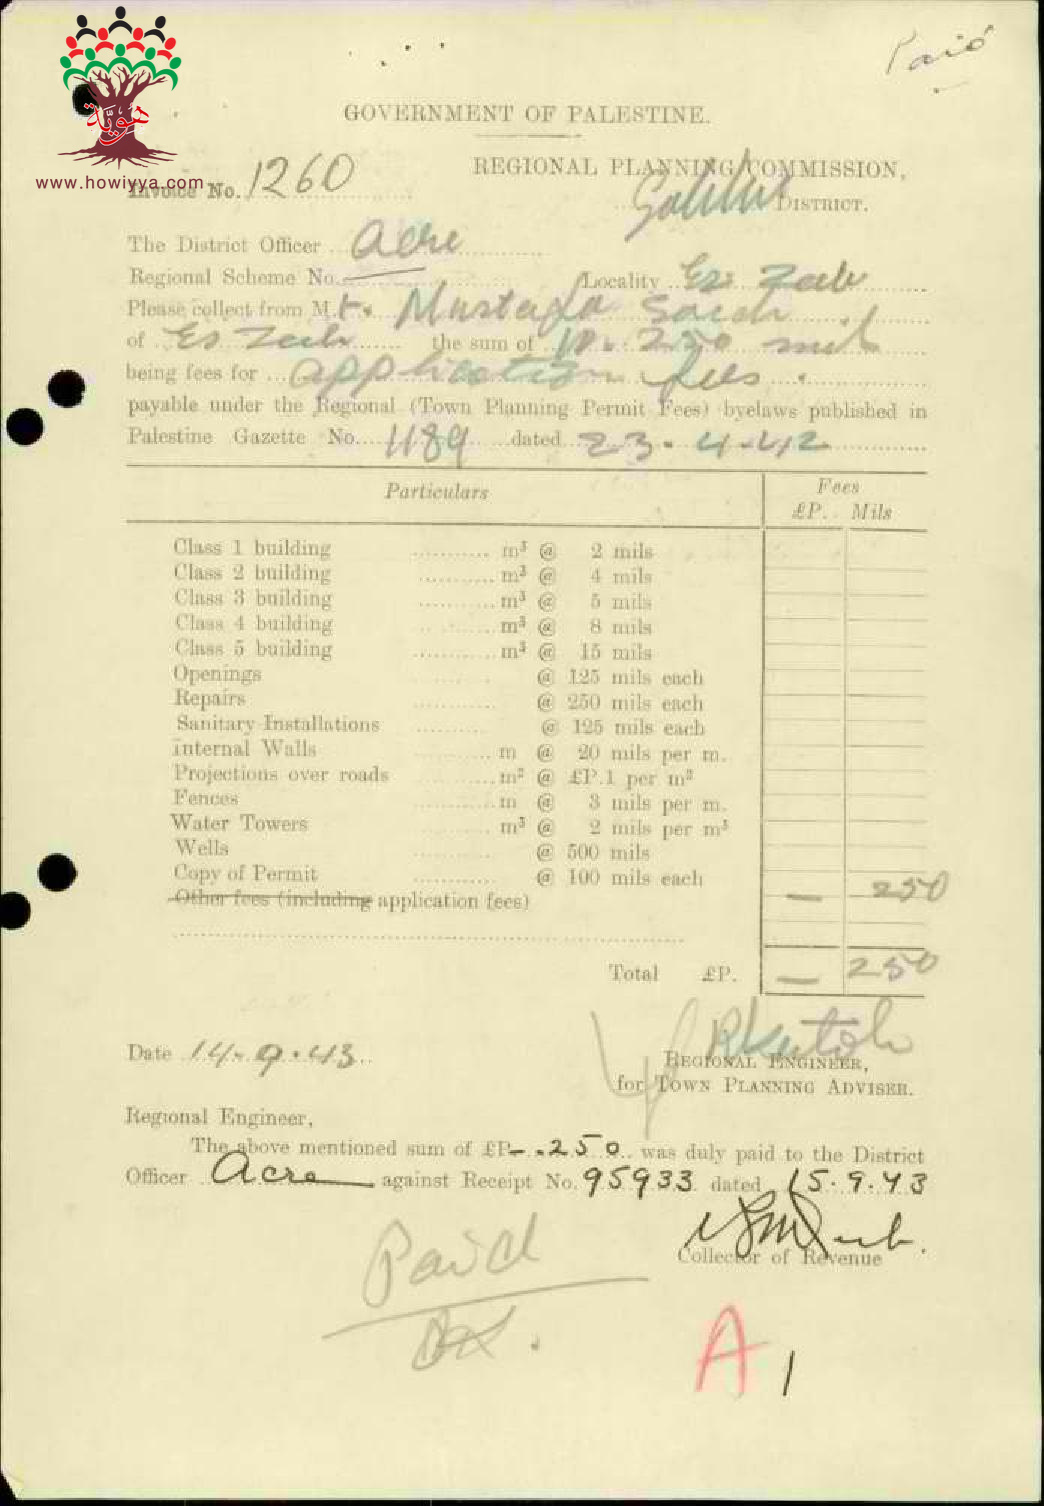 Paid
هويّة
www.howiyya.com
GOVERNMENT OF PALESTINE.
REGIONAL PLANNING COMMISSION,
Invoice No. 1260
Galilee DISTRICT.
The District Officer Acre
Regional Scheme No. — Locality Ez Zeeb
Please collect from Mr. Mustafa Saleh
of Ez Zeeb the sum of 250 mils
being fees for application fees.
payable under the Regional (Town Planning Permit Fees) byelaws published in
Palestine Gazette No. 1189 dated 23.4.42
Particulars Fees
£P. Mils
Class 1 building m³ @ 2 mils
Class 2 building m³ @ 4 mils
Class 3 building m³ @ 5 mils
Class 4 building m³ @ 8 mils
Class 5 building m³ @ 15 mils
Openings @ 125 mils each
Repairs @ 250 mils each
Sanitary Installations @ 125 mils each
Internal Walls m @ 20 mils per m.
Projections over roads m² @ £P.1 per m²
Fences m @ 3 mils per m.
Water Towers m³ @ 2 mils per m³
Wells @ 500 mils
Copy of Permit @ 100 mils each
Other fees (including application fees) — 250
Total £P. — 250
Date 14.9.43
REGIONAL ENGINEER,
for TOWN PLANNING ADVISER.
Regional Engineer,
The above mentioned sum of £P —.250 was duly paid to the District
Officer Acre against Receipt No. 95933 dated 15.9.43
Collector of Revenue
Paid
A
1